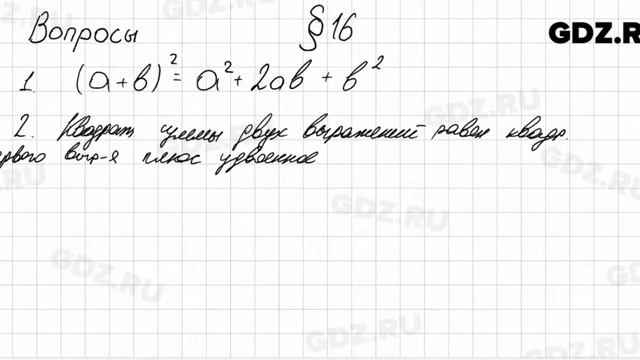 Вопросы § 16
GDZ.RU
1. (a+b)² = a² + 2ab + b²
2. Квадрат суммы двух выражений равен квадр.
ервого выр-я плюс удвоенное
GDZ.RU
GDZ.RU
GDZ.RU
GDZ.RU
GDZ.RU